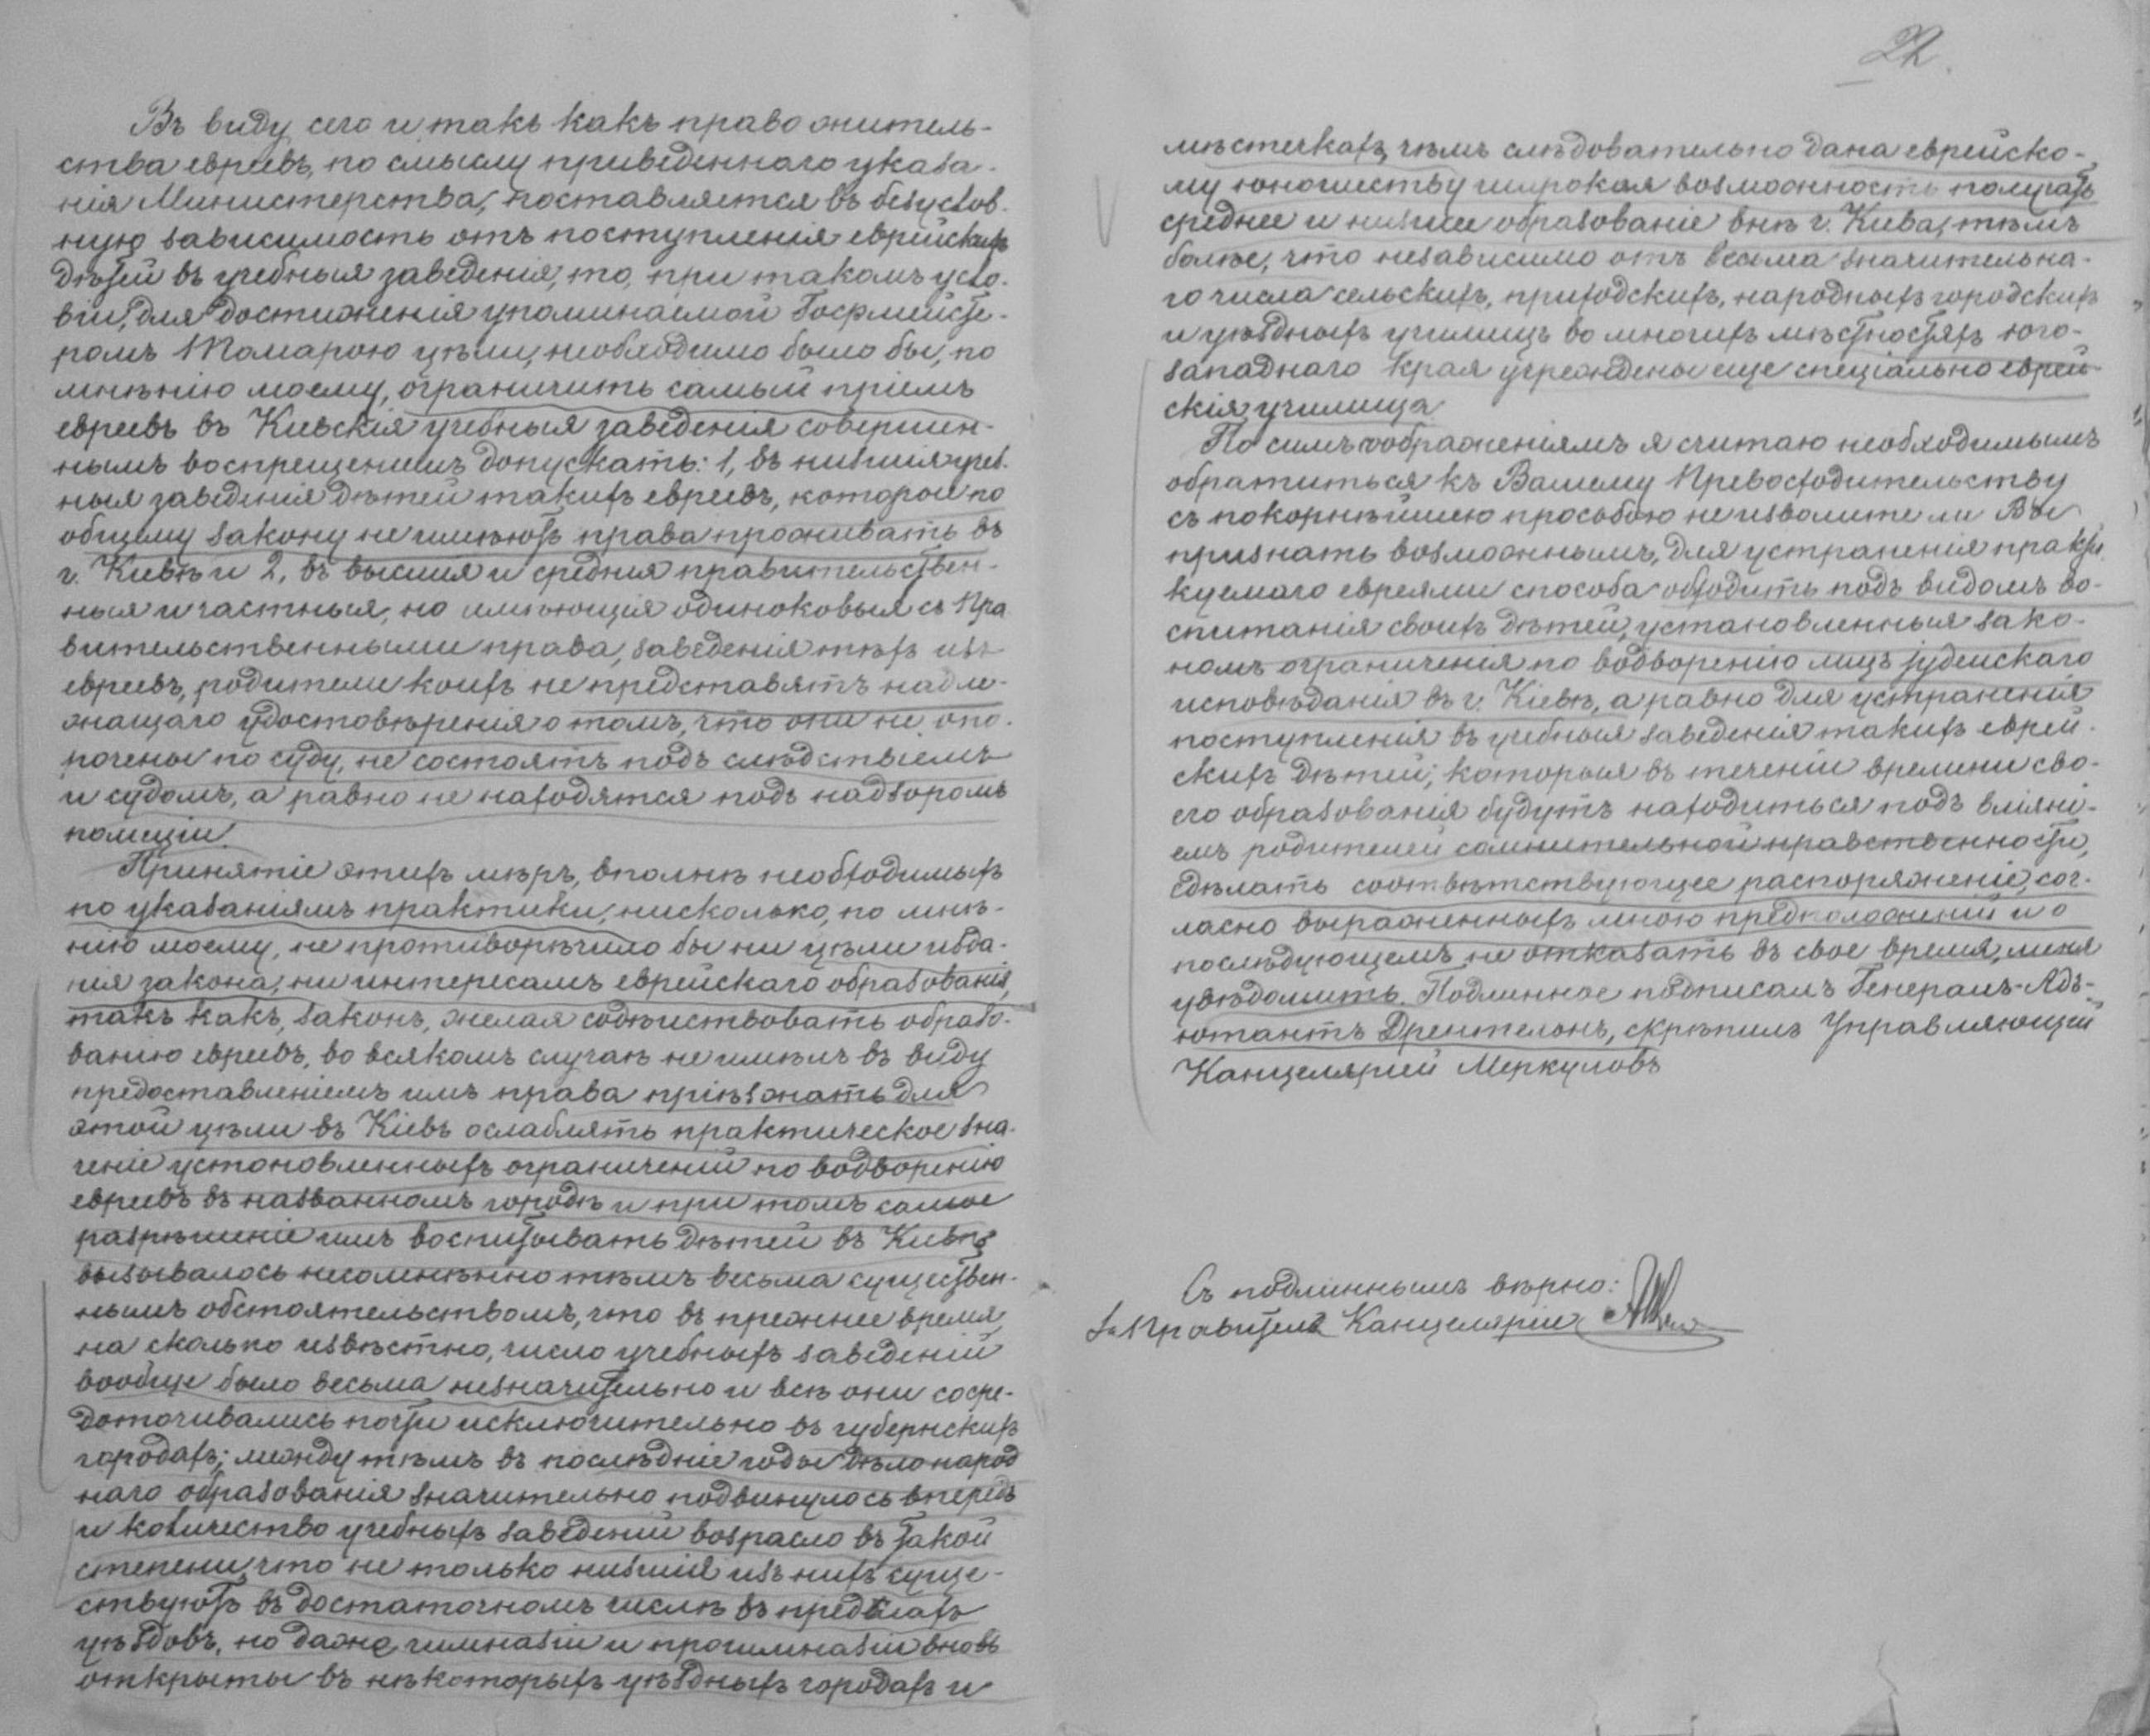 Въ виду сего и такъ какъ право житель-
ства евреевъ, по смыслу приведеннаго указа-
нія Министерства, поставляется въ безуслов-
ную зависимость отъ поступленія еврейскихъ
дѣтей въ учебныя заведенія, то, при такомъ усло-
віи, для достиженія упоминаемой Гофмейсте-
ромъ Томарою цѣли, необходимо было бы, по
мнѣнію моему, ограничить самый пріемъ
евреевъ въ Кіевскія учебныя заведенія совершен-
нымъ воспрещеніемъ допускать: 1, въ низшія учеб-
ныя заведенія дѣтей такихъ евреевъ, которые по
общему закону не имѣютъ права проживать въ
г. Кіевѣ и 2, въ высшія и среднія правительствен-
ныя и частныя, но имѣющія одинаковыя съ Пра
вительственными права, заведенія тѣхъ изъ
евреевъ, родители коихъ не представятъ надле-
жащаго удостовѣренія о томъ, что они не опо-
рочены по суду, не состоятъ подъ слѣдствіемъ
и судомъ, а равно не находятся подъ надзоромъ
полиціи.
Принятіе этихъ мѣръ, вполнѣ необходимыхъ
по указаніямъ практики, нисколько, по мнѣ-
нію моему, не противорѣчило бы ни цѣли изда-
нія закона, ни интересамъ еврейскаго образованія,
такъ какъ, законъ, желая содѣйствовать образо-
ванію евреевъ, во всякомъ случаѣ не имѣлъ въ виду
предоставленіемъ имъ права пріѣзжать для
этой цѣли въ Кіевъ ослаблять практическое зна-
ченіе установленныхъ ограниченій по водворенію
евреевъ въ названномъ городѣ и при томъ самое
разрѣшеніе имъ воспитывать дѣтей въ Кіевѣ
вызывалось несомнѣнно тѣмъ весьма существен-
нымъ обстоятельствомъ, что въ прежнее время,
на сколько извѣстно, число учебныхъ заведеній
вообще было весьма незначительно и всѣ они сосре-
доточивались почти исключительно въ губернскихъ
городахъ; между тѣмъ въ послѣдніе годы дѣло народ
наго образованія значительно подвинулось впередъ
и количество учебныхъ заведеній возрасло въ такой
степени, что не только низшія изъ нихъ суще-
ствуютъ въ достаточномъ числѣ въ предѣлахъ
уѣздовъ, но даже гимназіи и прогимназіи вновь
открыты въ нѣкоторыхъ уѣздныхъ городахъ и
22.
мѣстечкахъ, чѣмъ слѣдовательно дана еврейско-
му юношеству широкая возможность получать
среднее и низшее образованіе внѣ г. Кіева, тѣмъ
болѣе, что независимо отъ весьма значительна-
го числа сельскихъ, приходскихъ, народныхъ городскихъ
и уѣздныхъ училищъ во многихъ мѣстностяхъ юго-
западнаго края учреждены еще спеціально еврей-
скія училища.
По симъ соображеніямъ я считаю необходимымъ
обратиться къ Вашему Превосходительству
съ покорнѣйшею просьбою не изволите ли Вы
признать возможнымъ, для устраненія практи-
куемаго евреями способа обходить подъ видомъ во-
спитанія своихъ дѣтей, установленныя зако-
номъ ограниченія по водворенію лицъ іудейскаго
исповѣданія въ г. Кіевѣ, а равно для устраненія
поступленія въ учебныя заведенія такихъ еврей-
скихъ дѣтей, которыя въ теченіи времени сво-
его образованія будутъ находиться подъ вліяні-
емъ родителей сомнительной нравственности,
сдѣлать соотвѣтствующее распоряженіе, сог-
ласно выраженныхъ мною предположеній и о
послѣдующемъ не отказать въ свое время, меня
увѣдомить. Подлинное подписалъ Генералъ-Адъ-
ютантъ Дрентельнъ, скрѣпилъ Управляющій
Канцелярией Меркуловъ
Съ подлиннымъ вѣрно:
За Правителя Канцеляріи